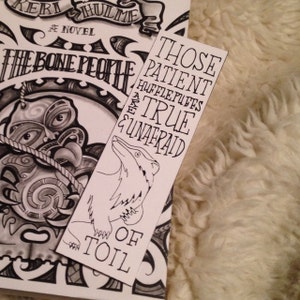 KERI HULME
A NOVEL
THE BONE PEOPLE
THOSE
PATIENT
HUFFLEPUFFS
ARE
TRUE
& UNAFRAID
OF
TOIL